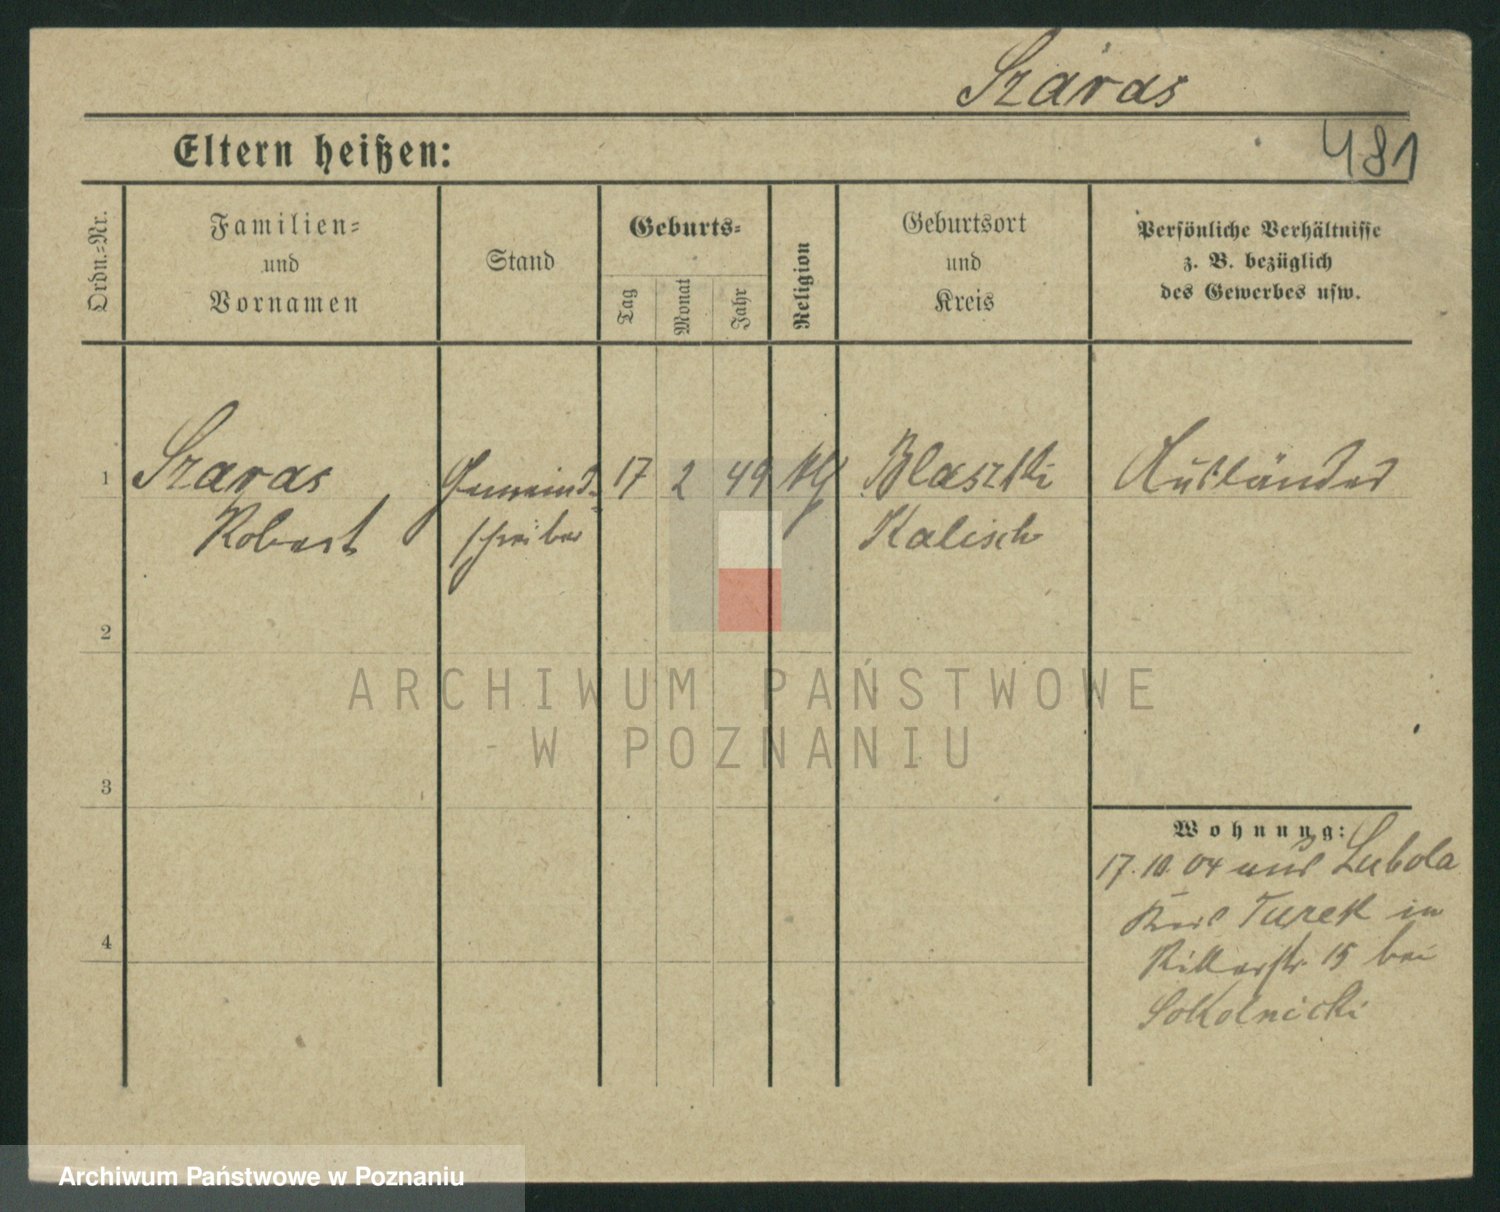 Szaras
Eltern heißen:
481
Ordn.-Nr.
Familien-
und
Vornamen
Stand
Geburts-
Tag
Monat
Jahr
Religion
Geburtsort
und
Kreis
Persönliche Verhältnisse
z. B. bezüglich
des Gewerbes usw.
1
Szaras
Robert
Gemeind-
schreiber
17
2
49
Blaszki
Kalisch
Ausländer
2
3
4
Wohnung:
17.10.04 aus Lubola
Kreis Turek in
Ritterstr. 15 bei
Sokolnicki
ARCHIWUM PAŃSTWOWE
W POZNANIU
Archiwum Państwowe w Poznaniu